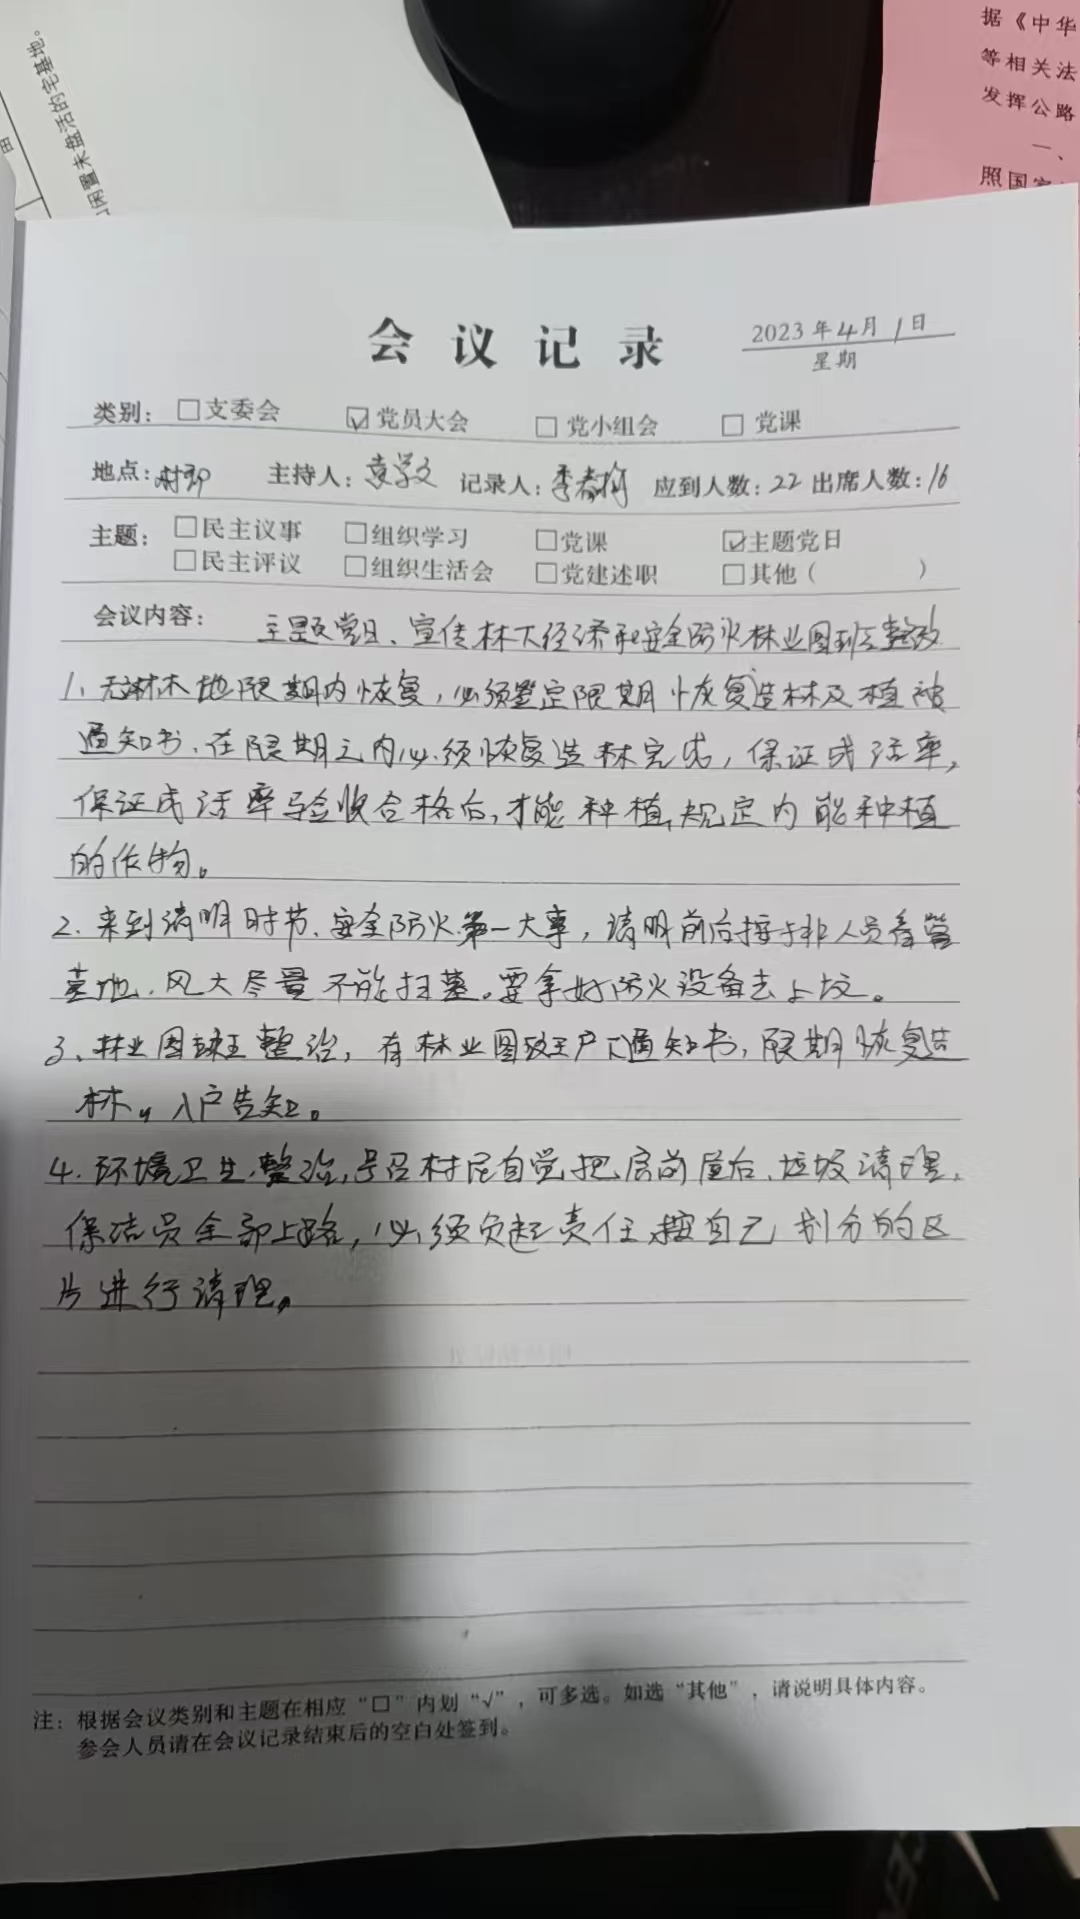 闲置未盘活的宅基地。
据《中华
等相关法
发挥公路
一、
照国家
会议记录
2023年4月1日
星期
类别：□支委会 ☑党员大会 □党小组会 □党课
地点：村部 主持人：袁学文 记录人：李春梅 应到人数：22 出席人数：16
主题：□民主议事 □组织学习 □党课 ☑主题党日
□民主评议 □组织生活会 □党建述职 □其他（ ）
会议内容： 主题党日、宣传林下经济和安全防火林业图斑整改
1、无林木地限期内恢复，必须签定限期恢复造林及植被
通知书、在限期之内必须恢复造林完成，保证成活率，
保证成活率验收合格后，才能种植规定内能种植
的作物。
2、来到清明时节、安全防火第一大事，清明前后 人员看管
墓地、风大尽量不能扫墓。要拿好防火设备去上坟。
3、林业图斑整治，有林业图斑户下通知书，限期恢复造
林，入户告知。
4、环境卫生整治，号召村民自觉把房前屋后、垃圾清理、
保洁员全部上路，必须负起责任按自己划分的区
片进行清理。
注：根据会议类别和主题在相应“□”内划“√”，可多选。如选“其他”，请说明具体内容。
参会人员请在会议记录结束后的空白处签到。